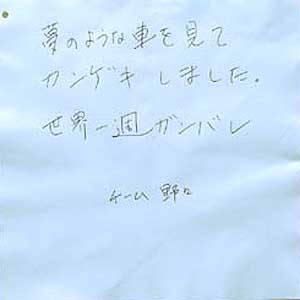 夢のような車を見て
カンゲキしました。
世界一週ガンバレ
チーム 野々